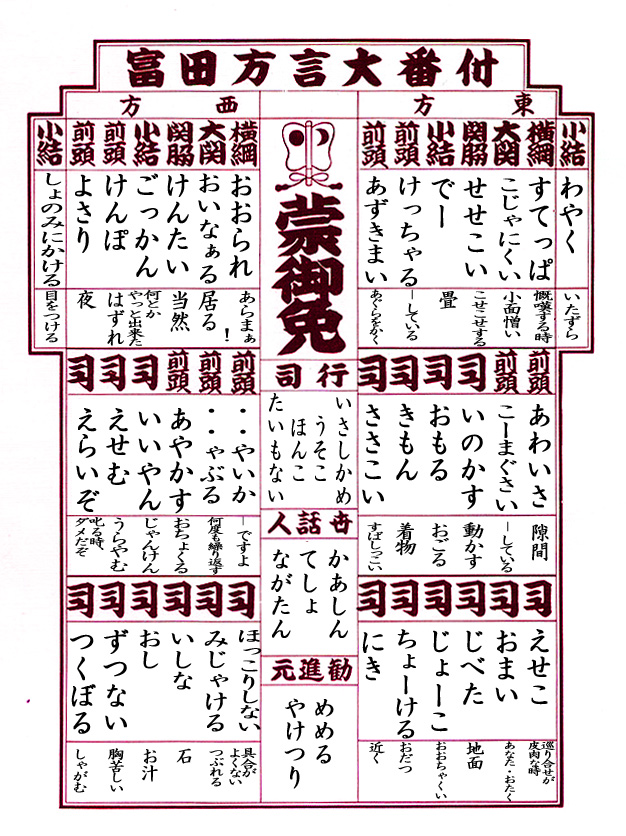 富田方言大番付
東方
西方
小結 わやく いたずら
横綱 すてっぱ 慨嘆する時
大関 こじゃにくい 小面憎い
関脇 せせこい こせこせする
小結 でー 畳
前頭 けっちゃる ーしている
前頭 あずきまい あぐらをかく
蒙御免
横綱 おおられ あらまぁ!
大関 おいなぁる 居る
関脇 けんたい 当然
小結 ごっかん 何とかやっと出来た
前頭 けんぽ はずれ
前頭 よさり 夜
小結 しょのみにかける 目をつける
前頭 あわいさ 隙間
前頭 こーまぐさい ーしている
司 いのかす 動かす
司 おもる おごる
司 きもん 着物
司 ささこい すばしっこい
行司
いさしかめ
うそこ
ほんこ
たいもない
前頭 ・・やいか ーですよ
前頭 ・・ゃぶる 何度も繰り返す
前頭 あやかす おちょくる
司 いいやん じゃんけん
司 えせむ うらやむ
司 えらいぞ 叱る時、ダメだぞ
世話人
かあしん
てしょ
ながたん
司 えせこ 巡り合せが皮肉な時
司 おまい あなた・おたく
司 じべた 地面
司 じょーこ おおちゃくい
司 ちょーける おだつ
司 にき 近く
勧進元
めめる
やけつり
司 ほっこりしない 具合がよくない
司 みじゃける つぶれる
司 いしな 石
司 おし お汁
司 ずつない 胸苦しい
司 つくぼる しゃがむ